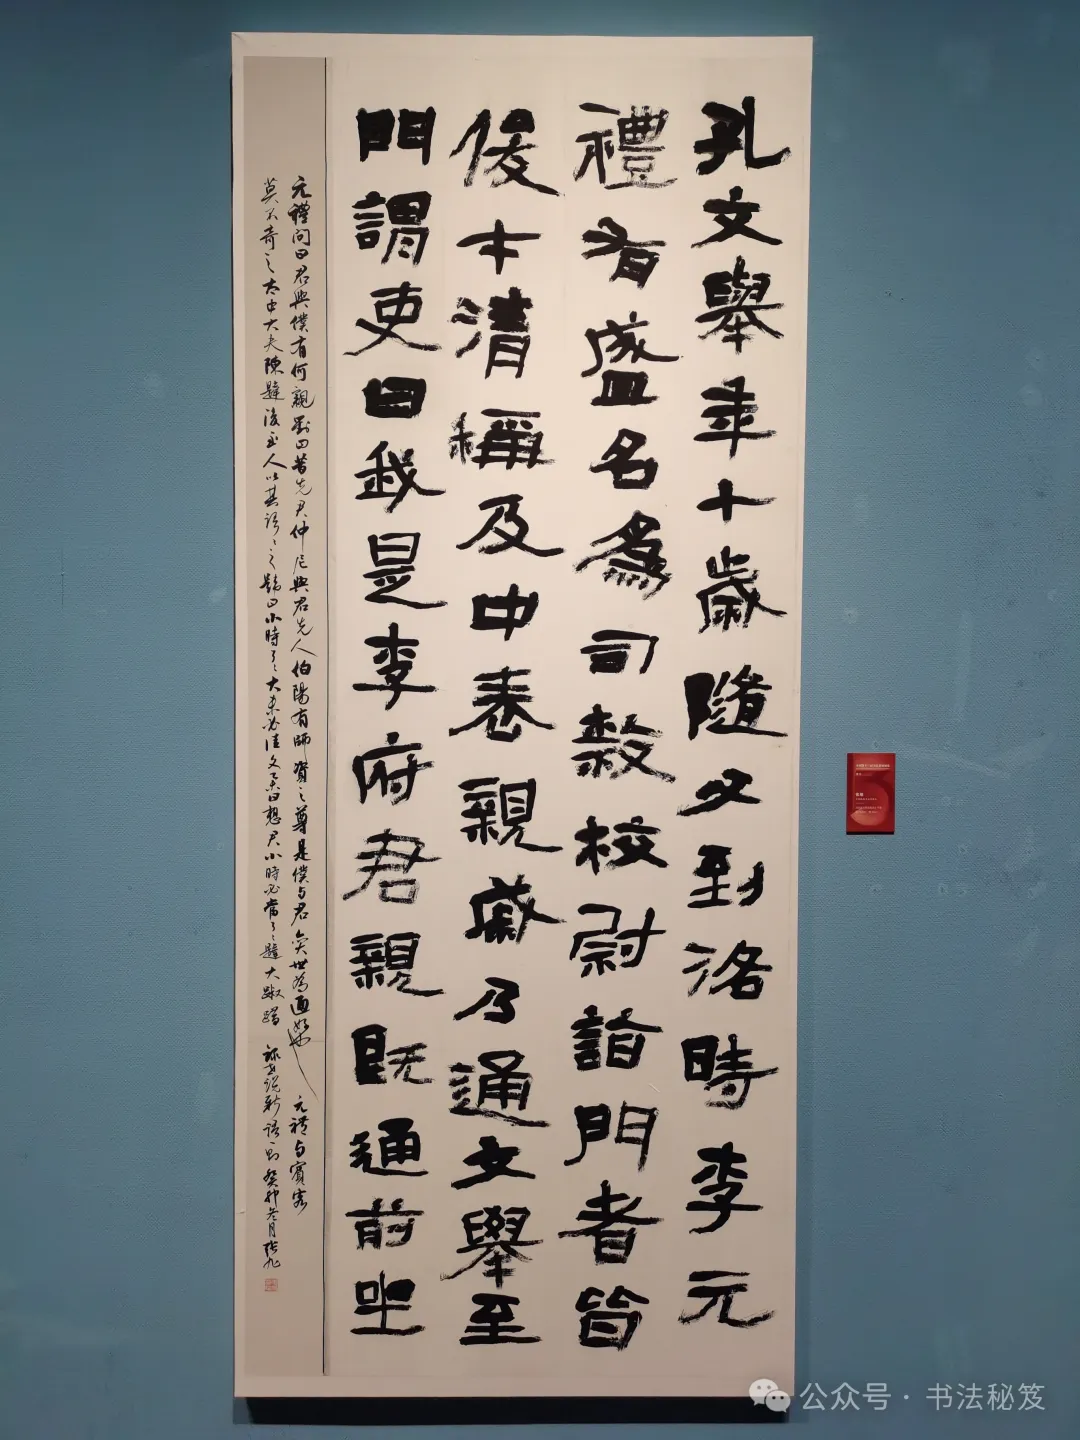 孔文舉年十歲隨父到洛時李元
禮有盛名為司隸校尉詣門者皆
俊才清稱及中表親戚乃通文舉至
門謂吏曰我是李府君親既通前坐
元禮問曰君與僕有何親對曰昔先君仲尼與君先人伯陽有師資之尊是僕与君奕世為通好也元禮与賓客
莫不奇之太中大夫陳韙後至人以其語語之韙曰小時了了大未必佳文舉曰想君小時必當了了韙大踧踖 世說新語一則 癸卯冬月
公众号 · 书法秘笈